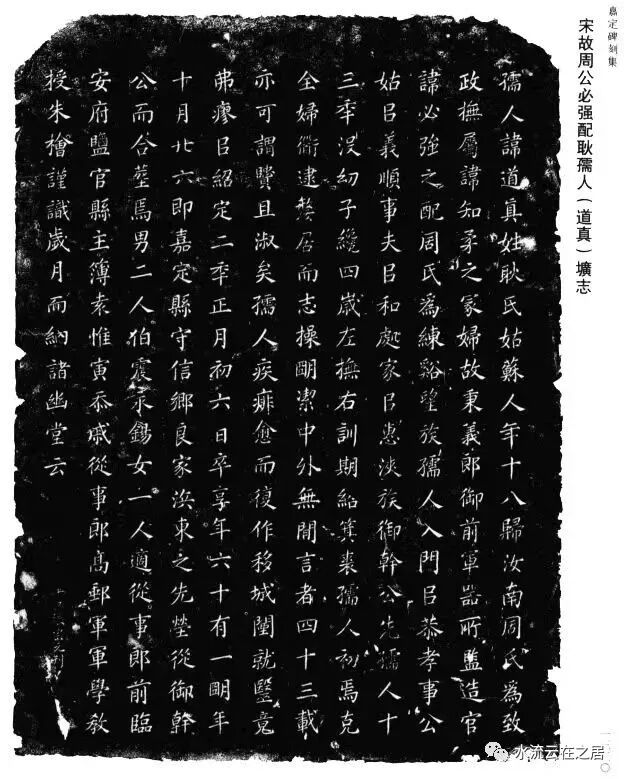 嘉定碑刻集
宋故周公必强配耿孺人（道真）壙志
孺人諱道真姓耿氏姑蘇人年十八歸汝南周氏為致
政撫屬諱知柔之冢婦故秉義郎御前軍器所監造官
諱必強之配周氏為練谿望族孺人入門㠯恭孝事公
姑㠯義順事夫㠯和處家㠯惠浹族御幹公先孺人十
三秊没幼子纔四歲左撫右訓期紹箕裘孺人初焉克
全婦衜逮嫠居而志操明潔中外無閒言者四十三載
亦可謂賢且淑矣孺人疾痱愈而復作移城闉就毉竟
弗瘳㠯紹定二秊正月初六日卒享年六十有一明年
十月廿六即嘉定縣守信鄉良家浜東之先塋從御幹
公而合葬焉男二人伯震永錫女一人適從事郎前臨
安府鹽官縣主簿袁惟寅忝戚從事郎高郵軍軍學教
授朱檜謹識歲月而納諸幽堂云
水流云在之居